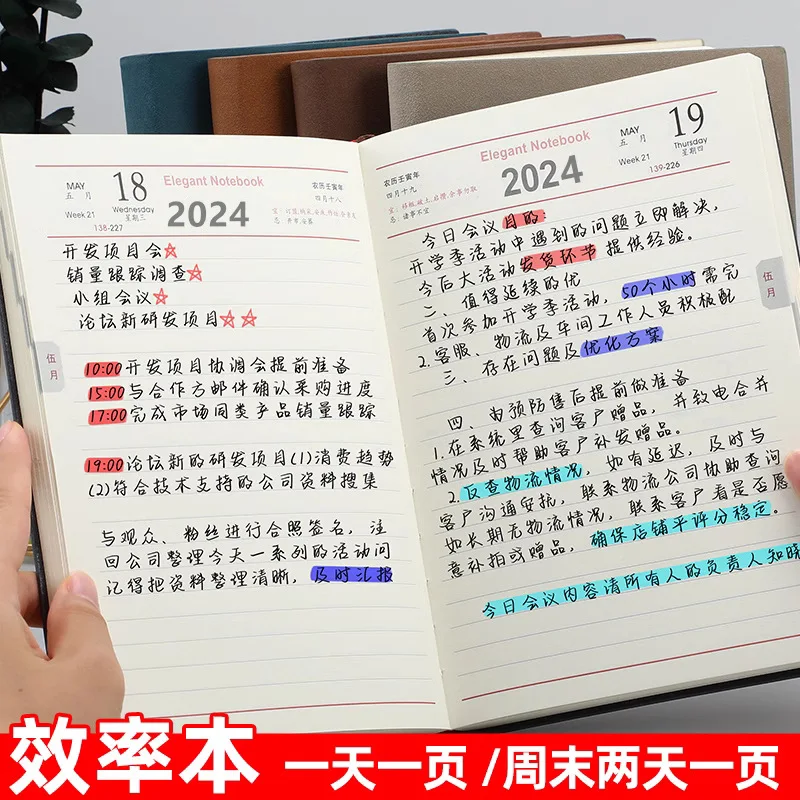 MAY
五 月
18
Elegant Notebook
农历壬寅年
四月十八
Week 21
Wednesday
星期三
2024
138-227
开发项目会
销量跟踪调查
小组会议
论坛新研发项目
10:00 开发项目协调会提前准备
15:00 与合作方邮件确认采购进度
17:00 完成市场同类产品销量跟踪
19:00 论坛新的研发项目(1)消费趋势
(2)符合技术支持的公司资料搜集
与观众、粉丝进行合照签名,注
回公司整理今天一系列的活动问
记得把资料整理清晰,及时汇报
伍月
农历壬寅年
四月十九
Elegant Notebook
2024
MAY
五 月
19
Thursday
星期四
Week 21
139-226
忌:诸事不宜
今日会议目的:
开学季活动中遇到的问题立即解决,
今后大活动发货环节提供经验。
二、值得延续的优
首次参加开学季活动,50个小时需完
2.客服、物流及车间工作人员积极配
三、存在问题及优化方案
四、由预防售后提前做准备
1.在系统里查询客户赠品,并致电合并
情况及时帮助客户补发赠品。
2.反查物流情况,如有延迟,及时与
客户沟通安抚,联系物流公司协助查询
如长期无物流情况,联系客户看是否愿
意补拍或赠品,确保店铺平评分稳定。
今日会议内容请所有人的负责人知晓
伍月
效率本 一天一页 /周末两天一页